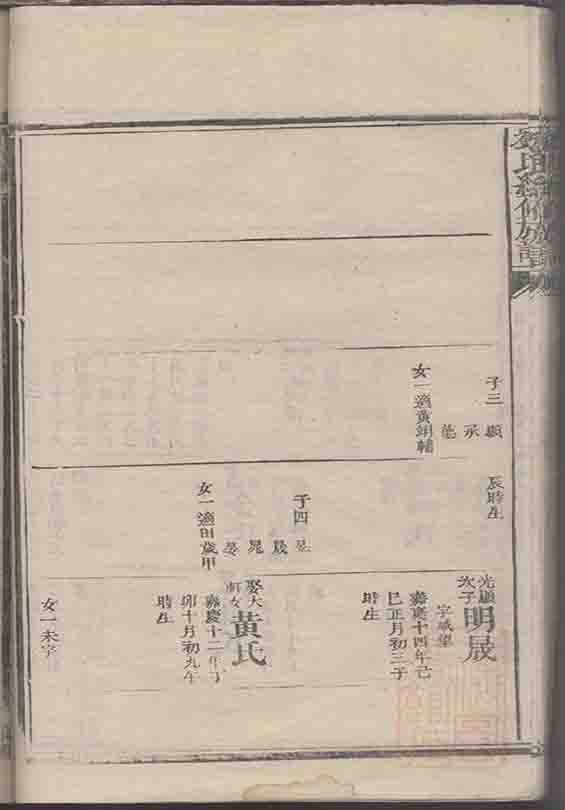 氏續修族譜
子三 顯
承
女一適黃翊輔
辰時生
子四
晟
晃
晏
女一適田歲甲
光顯
次子
明晟
字
嘉慶十四年己
巳正月初三子
時生
娶大
女
黃氏
嘉慶十二年丁
卯十月初九午
時生
女一未字